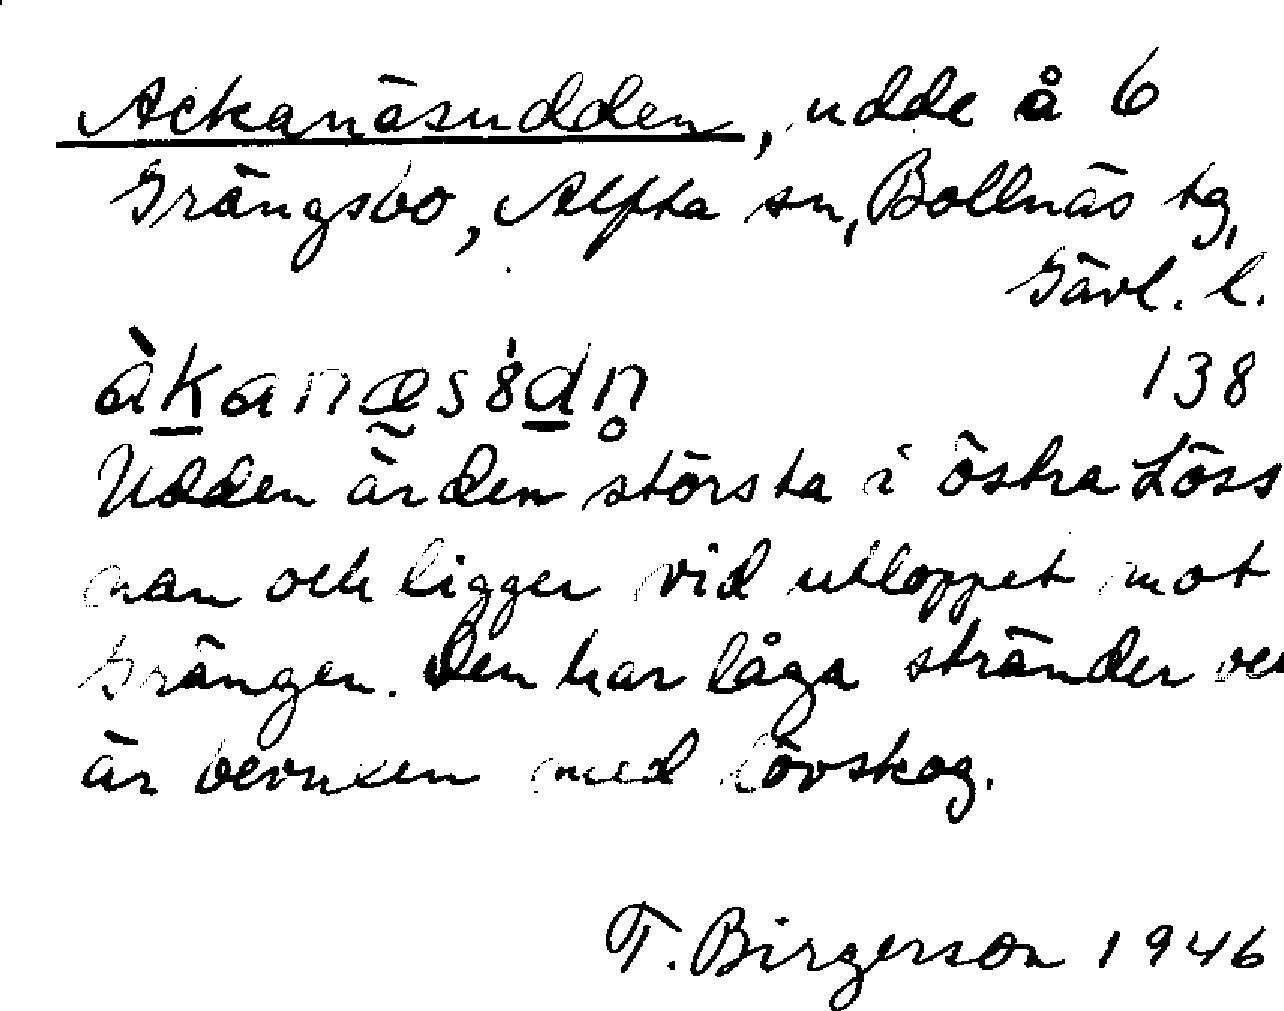 Ackanäsudden, udde å 6
Grängsbo, Alfta sn, Bollnäs tg,
Gävl. l.
àkanæsꞌ8dn̥ 138
Udden är den största i östra Löss
nan och ligger vid utloppet mot
Grängen. Den har låga stränder
är bevuxen med lövskog.
T. Birgerson 1946